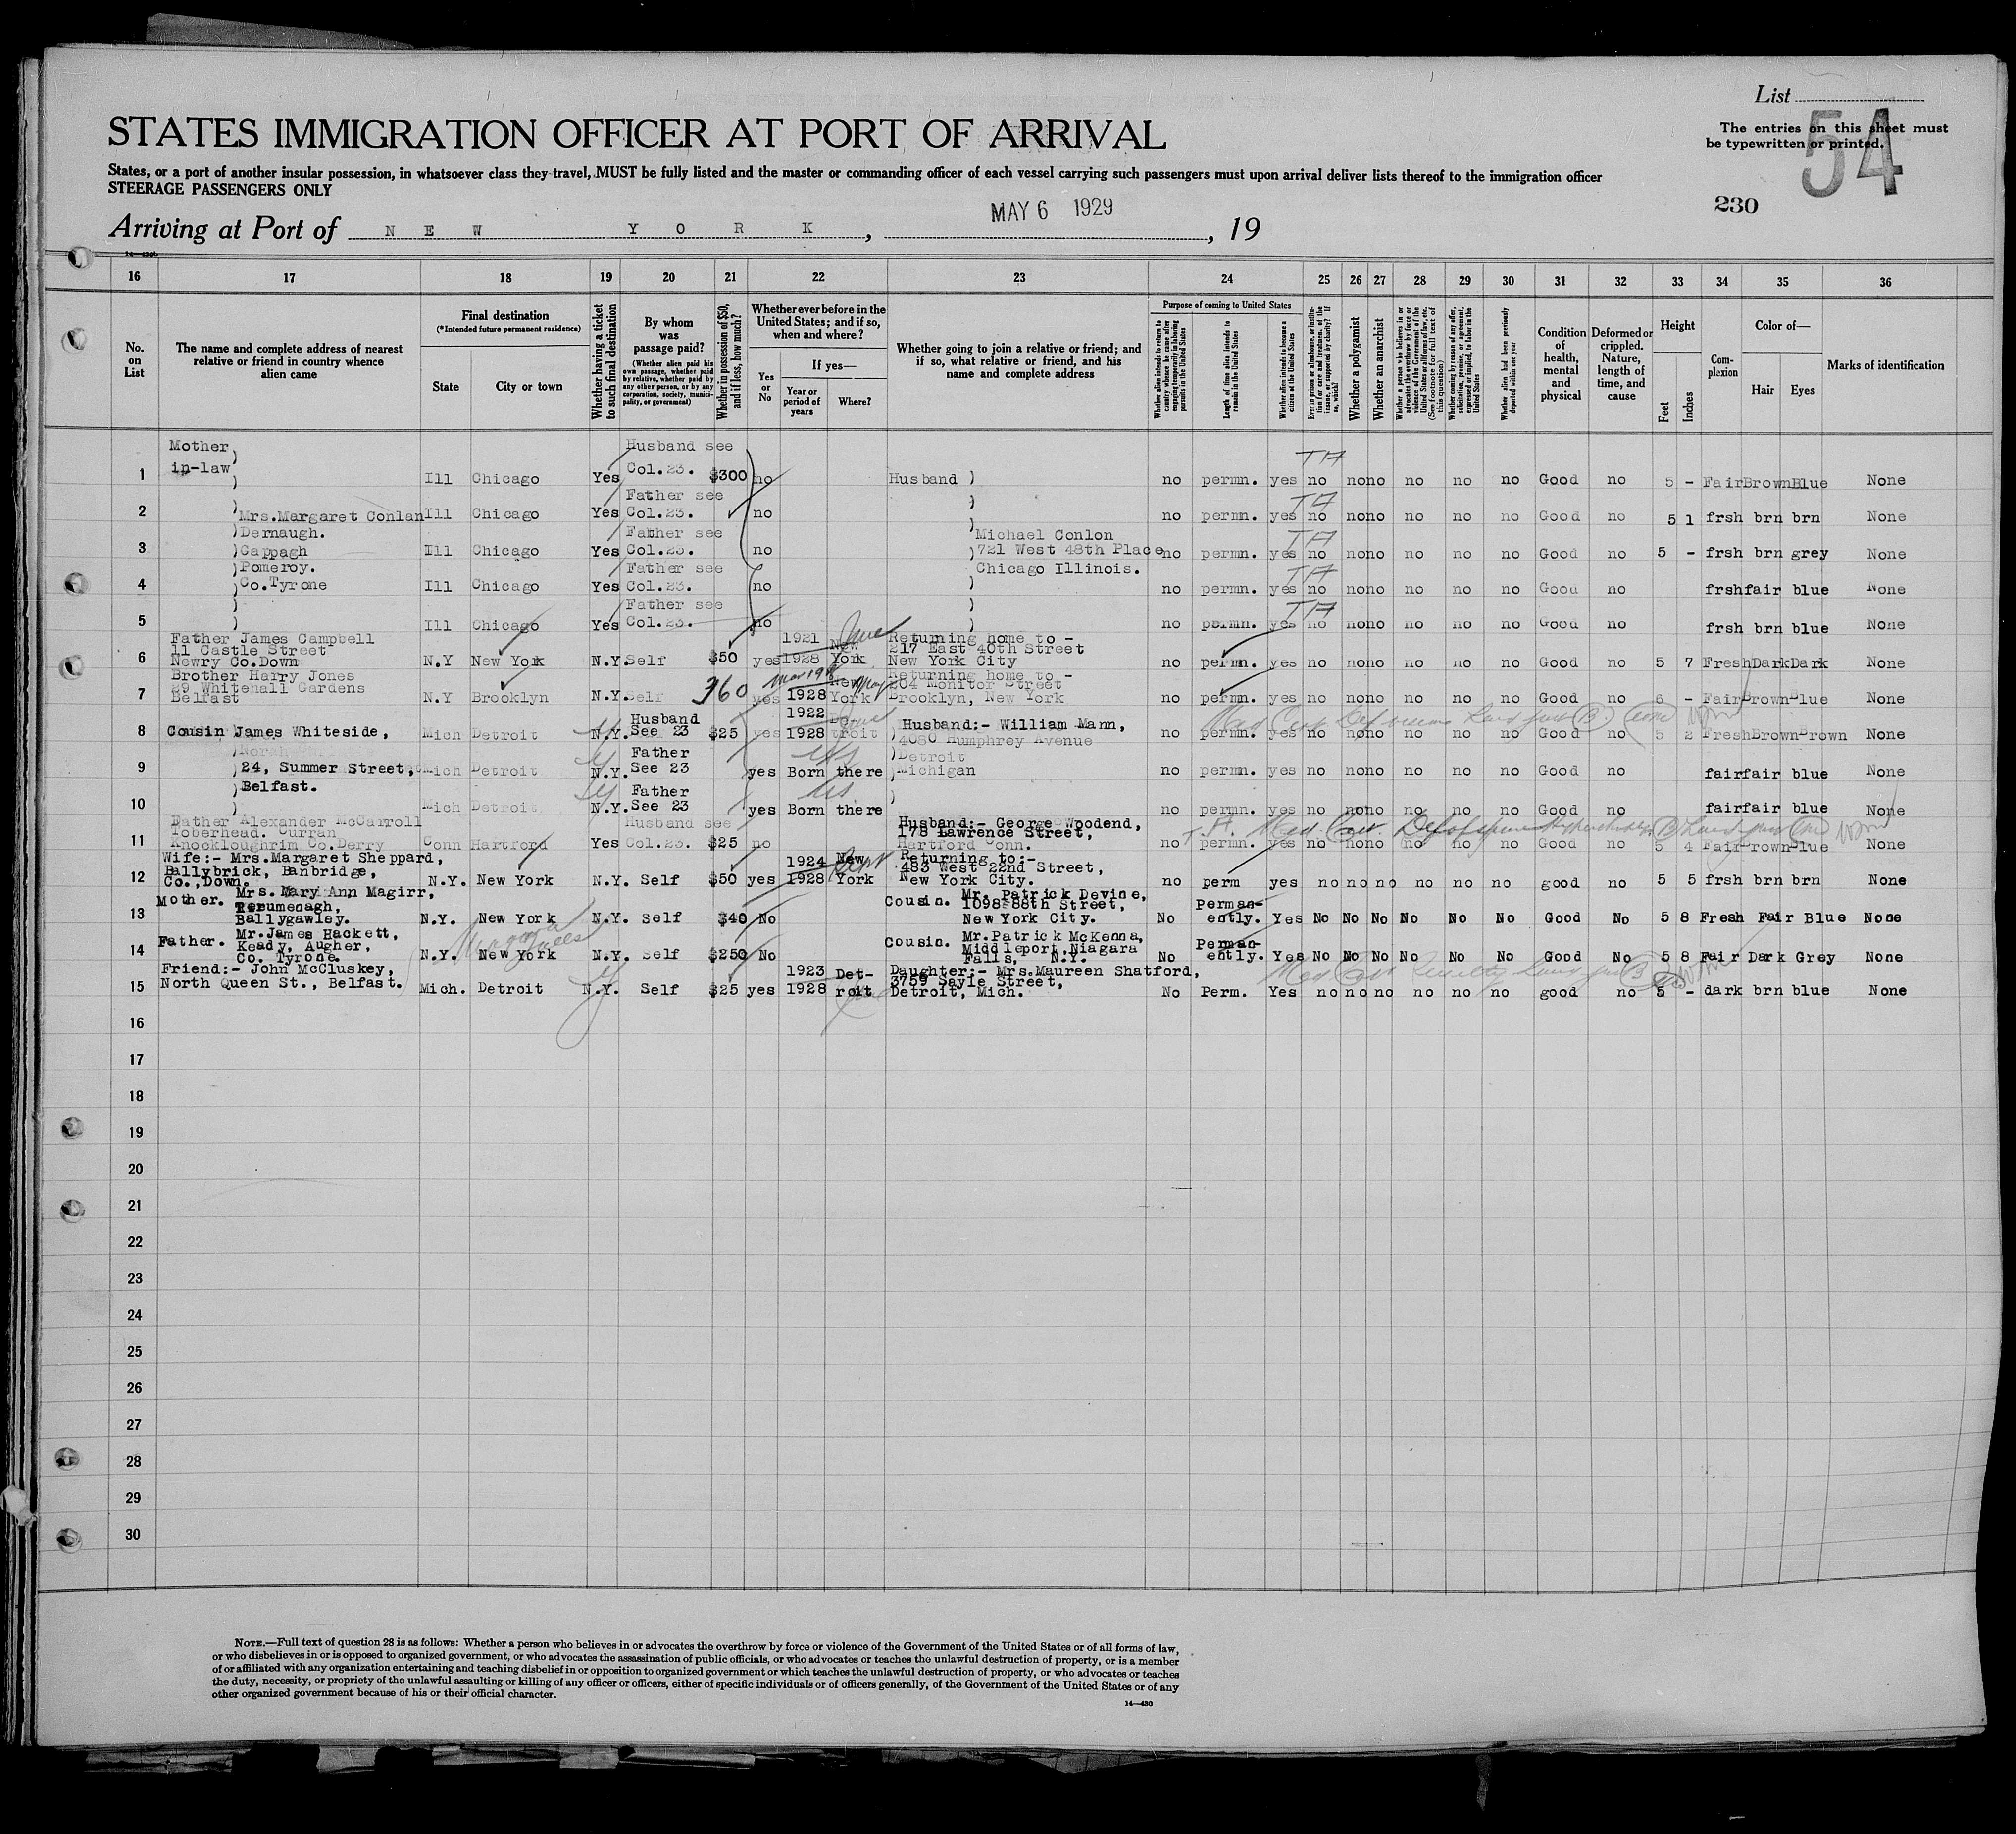 List
54
The entries on this sheet must
be typewritten or printed.
230
STATES IMMIGRATION OFFICER AT PORT OF ARRIVAL
States, or a port of another insular possession, in whatsoever class they travel, MUST be fully listed and the master or commanding officer of each vessel carrying such passengers must upon arrival deliver lists thereof to the immigration officer
STEERAGE PASSENGERS ONLY
Arriving at Port of NEW YORK, MAY 6 1929, 19
16 17 18 19 20 21 22 23 24 25 26 27 28 29 30 31 32 33 34 35 36
No. on List
The name and complete address of nearest relative or friend in country whence alien came
Final destination
(*Intended future permanent residence)
State
City or town
Whether having a ticket to such final destination
By whom was passage paid?
(Whether alien paid his own passage, whether paid by relative, whether paid by any other person, or by any corporation, society, municipality, or government)
Whether in possession of $50, and if less, how much?
Whether ever before in the United States; and if so, when and where?
Yes or No
If yes—
Year or period of years
Where?
Whether going to join a relative or friend; and if so, what relative or friend, and his name and complete address
Purpose of coming to United States
Whether alien intends to return to country whence he came after engaging temporarily in laboring pursuits in the United States
Length of time alien intends to remain in the United States
Whether alien intends to become a citizen of the United States
Ever in prison or almshouse, or institution for care and treatment of the insane, or supported by charity? If so, which?
Whether a polygamist
Whether an anarchist
Whether a person who believes in or advocates the overthrow by force or violence of the Government of the United States or all forms of law, etc. (See footnote for full text of this question)
Whether coming by reason of any offer, solicitation, promise, or agreement, expressed or implied, to labor in the United States
Whether alien had been previously deported within one year
Condition of health, mental and physical
Deformed or crippled. Nature, length of time, and cause
Height
Feet
Inches
Complexion
Color of—
Hair
Eyes
Marks of identification
1 Mother in-law ) Ill Chicago Yes Husband see Col.23. $300 no Husband ) no permn. yes no no no no no no Good no 5 - Fair Brown Blue None
2 Mrs.Margaret Conlan Ill Chicago Yes Father see Col.23. no no permn. yes no no no no no no Good no 5 1 frsh brn brn None
3 Dernaugh. Cappagh Ill Chicago Yes Father see Col.23. no Michael Conlon 721 West 48th Place no permn. yes no no no no no no Good no 5 - frsh brn grey None
4 Pomeroy. Co.Tyrone Ill Chicago Yes Father see Col.23. no Chicago Illinois. no permn. yes no no no no no no Good no frsh fair blue None
5 Ill Chicago Yes Father see Col.23. no no permn. yes no no no no no no Good no frsh brn blue None
6 Father James Campbell 11 Castle Street Newry Co.Down N.Y New York N.Y. Self $50 yes 1921 1928 New York Returning home to - 217 East 40th Street New York City no permn. yes no no no no no no Good no 5 7 Fresh Dark Dark None
7 Brother Harry Jones 29 Whitehall Gardens Belfast N.Y Brooklyn N.Y. Self 360 yes 1928 New York Returning home to - 204 Monitor Street Brooklyn, New York no permn. yes no no no no no no Good no 6 - Fair Brown Blue None
8 Cousin James Whiteside, Mich Detroit N.Y. Husband See 23 $25 yes 1922 1928 Detroit Husband:- William Mann, 4080 Humphrey Avenue no permn. yes no no no no no no Good no 5 2 Fresh Brown Brown None
9 24, Summer Street, Mich Detroit N.Y. Father See 23 yes Born there Detroit Michigan no permn. yes no no no no no no Good no fair fair blue None
10 Belfast. Mich Detroit N.Y. Father See 23 yes Born there no permn. yes no no no no no no Good no fair fair blue None
11 Father Alexander McCarroll Toberhead. Curran Knockloughrim Co.Derry Conn Hartford Yes Husband see Col.23. $25 no Husband:- George Woodend, 178 Lawrence Street, Hartford Conn. no permn. yes no no no no no no Good no 5 4 Fair Brown Blue None
12 Wife:- Mrs.Margaret Sheppard, Ballybrick, Banbridge, Co.,Down. N.Y. New York N.Y. Self $50 yes 1924 1928 New York Returning to:- 483 West 22nd Street, New York City. no perm yes no no no no no no good no 5 5 frsh brn brn None
13 Mother. Mrs. Mary Ann Magirr, Ballygawley. N.Y. New York N.Y. Self $40 No Cousin. Mr. Patrick Devine, 1098-88th Street, New York City. No Permanently. Yes No No No No No No Good No 5 8 Fresh Fair Blue None
14 Father. Mr.James Hackett, Keady, Augher, Co. Tyrone. N.Y. New York Niagara Falls N.Y. Self $250 No Cousin. Mr.Patrick McKenna, Middleport,Niagara Falls, N.Y. No Permanently. Yes No No No No No No Good No 5 8 Fair Dark Grey None
15 Friend:- John McCluskey, North Queen St., Belfast. Mich. Detroit N.Y. Self $25 yes 1923 1928 Detroit Daughter:- Mrs.Maureen Shatford, 3759 Sayle Street, Detroit, Mich. No Perm. Yes no no no no no no good no 5 - dark brn blue None
16
17
18
19
20
21
22
23
24
25
26
27
28
29
30
NOTE.—Full text of question 28 is as follows: Whether a person who believes in or advocates the overthrow by force or violence of the Government of the United States or of all forms of law,
or who disbelieves in or is opposed to organized government, or who advocates the assassination of public officials, or who advocates or teaches the unlawful destruction of property, or is a member
of or affiliated with any organization entertaining and teaching disbelief in or opposition to organized government or which teaches the unlawful destruction of property, or who advocates or teaches
the duty, necessity, or propriety of the unlawful assaulting or killing of any officer or officers, either of specific individuals or of officers generally, of the Government of the United States or of any
other organized government because of his or their official character.
14—430